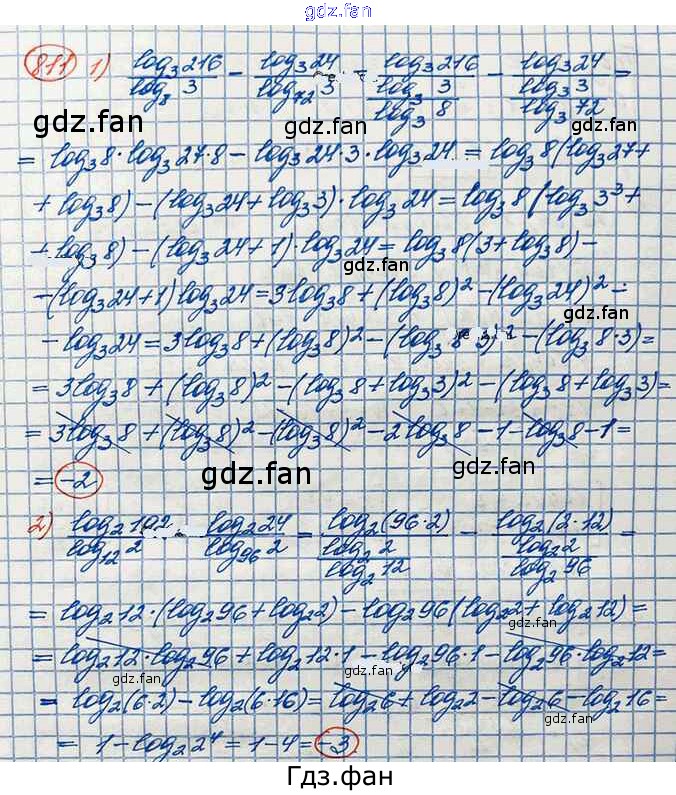 gdz.fan
811 1) log₃216/log₈3 − log₃24/log₇₂3 = log₃216/(log₃3/log₃8) − log₃24/(log₃3/log₃72) =
gdz.fan gdz.fan
= log₃8·log₃27·8 − log₃24·3·log₃24 = log₃8(log₃27+
+ log₃8) − (log₃24 + log₃3)·log₃24 = log₃8(log₃3³+
+ log₃8) − (log₃24 + 1)·log₃24 = log₃8(3+log₃8) −
gdz.fan
− (log₃24+1)log₃24 = 3log₃8 + (log₃8)² − (log₃24)² −
gdz.fan
− log₃24 = 3log₃8 + (log₃8)² − (log₃8·3)² − (log₃8·3) =
= 3log₃8 + (log₃8)² − (log₃8 + log₃3)² − (log₃8 + log₃3) =
= 3log₃8 + (log₃8)² − (log₃8)² − 2log₃8 − 1 − log₃8 − 1 =
= −2
gdz.fan gdz.fan
2) log₂192/log₁₂2 − log₂24/log₉₆2 = log₂(96·2)/(log₂2/log₂12) − log₂(2·12)/(log₂2/log₂96) =
= log₂12·(log₂96 + log₂2) − log₂96(log₂2 + log₂12) =
gdz.fan
= log₂12·log₂96 + log₂12·1 − log₂96·1 − log₂96·log₂12 =
gdz.fan
= log₂(6·2) − log₂(6·16) = log₂6 + log₂2 − log₂6 − log₂16 =
gdz.fan
= 1 − log₂2⁴ = 1 − 4 = −3
Гдз.фан